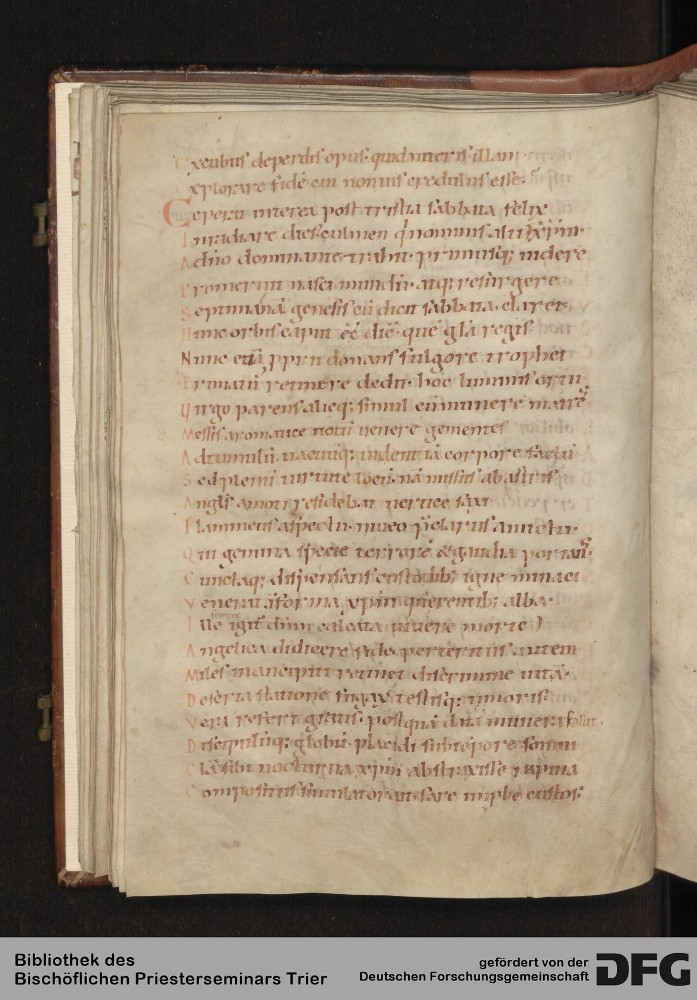 xcubiis deperdis opus. quid uteris illam
xplorare fidē cui non uis credulus esse.
Ceperat interea post tristia sabbata felix
Irradiare dies culmen qd nominis alti xpm
Ad dño dominante trahit. primusq; uidere
Promeruit nasci mundū. atq; resurgere
Septimanā genesis cū dicit sabbata. claret
Hunc orbis caput ēē diē. quē gla regis
Nunc etiā ppru donans fulgore trophei
Primatū retinere dedit. hoc luminis ortu
Virgo parens alieq; simul cū munere matrē
Messis aromatice notū uenere gementes
Ad tumulū. uacuūq; uident iā corpore factū
Sed plenū uirtute locū. nā missus ab astris
Angls amoti residebat uertice saxi
Flammeus aspectu. niueo pclarus amictu.
Qui gemina specie terrorē & gaudia portans.
Cunctaq; dispensans custodib; igne minaci
Venerat. & forma xpm querentib; alba.
Ille igit dum calcata uiuere morte
Angelica didicere fide. perterritus autem
Miles mancipiū retinet discrimine uitā.
Deserta statione fugax testisq; timoris.
Vera refert gratis. postquā data munera fallit.
Discipulūq; globū. placidi sub tēpore somni
Clā sibi nocturna xpm abstraxisse rapina
Compositus simulator ait. fare improbe custos;
Bibliothek des
Bischöflichen Priesterseminars Trier
gefördert von der
Deutschen Forschungsgemeinschaft
DFG